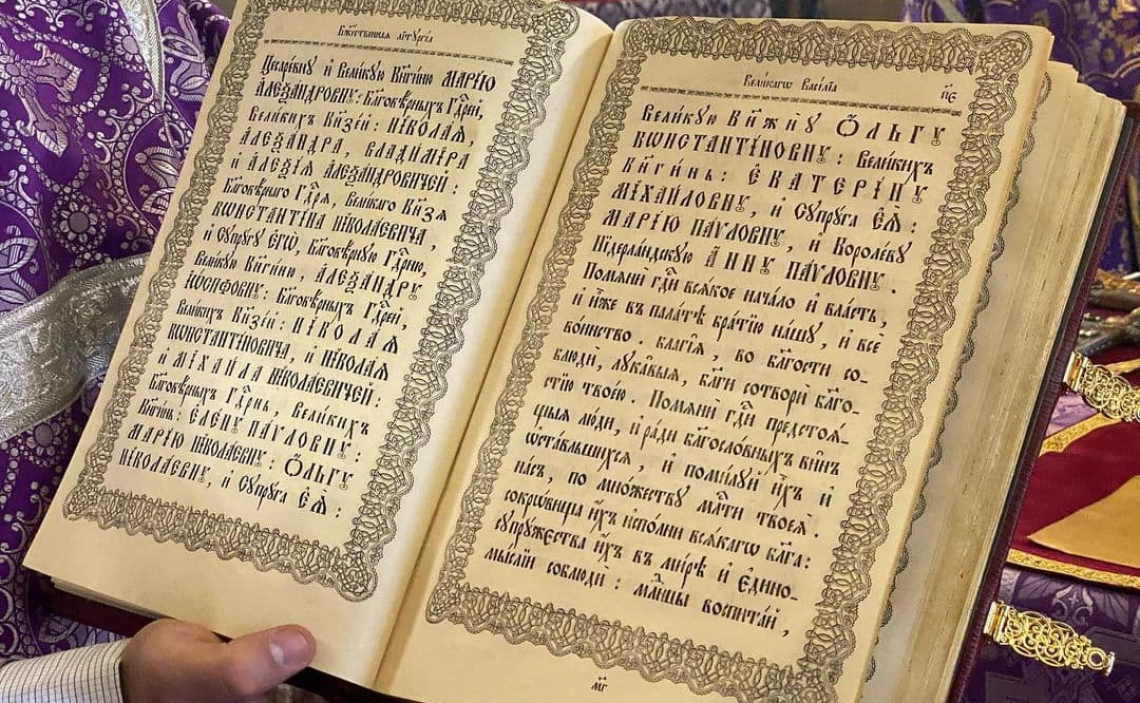 Бжⷭ҇твеннаѧ лїтꙋргі́а
Цесаре́внꙋ и҆ Вели́кꙋю Кнѧги́ню МАРІ́Ю
А҆ЛЕѮА́НДРОВНꙋ: Бл҃говѣ́рныхъ Гдⷭ҇ре́й,
Вели́кихъ Кнѧзе́й: НІКОЛА́Ѧ,
А҆ЛЕѮА́НДРА, ВЛАДИ́МІРА
и҆ А҆ЛЕѮІ́Ѧ А҆ЛЕѮА́НДРОВИЧЕЙ:
Бл҃говѣ́рнаго Гдⷭ҇рѧ, Вели́каго Кнѧ́зѧ
КѠНСТАНТІ́НА НІКОЛА́ЕВИЧА,
и҆ Сꙋпрꙋ́гꙋ є҆гѡ̀, Бл҃говѣ́рнꙋю Гдⷭ҇рню,
Вели́кꙋю Кнѧги́ню, А҆ЛЕѮА́НДРꙋ
І҆Ѡ́СИФОВНꙋ: Бл҃говѣ́рныхъ Гдⷭ҇ре́й,
Вели́кихъ Кнѧзе́й: НІКОЛА́Ѧ
КѠНСТАНТІ́НОВИЧА, и҆ НІКОЛА́Ѧ
и҆ МІХАИ́ЛА НІКОЛА́ЕВИЧЕЙ:
Бл҃говѣ́рныхъ Гдⷭ҇рнь, Вели́кихъ
Кнѧги́нь: Є҆ЛЕ́Нꙋ ПА́ѴЛОВНꙋ:
МАРІ́Ю НІКОЛА́ЕВНꙋ: Ѻ҆́ЛЬГꙋ
НІКОЛА́ЕВНꙋ, и҆ Сꙋпрꙋ́га Є҆Ѧ̀:
Вели́кагѡ Васі́лїа
п҃є
Вели́кꙋю Кнѧжнꙋ̀ Ѻ҆́ЛЬГꙋ
КѠНСТАНТІ́НОВНꙋ: Вели́кихъ
Кнѧги́нь: Є҆КАТЕРІ́Нꙋ
МІХА́ЙЛОВНꙋ, и҆ Сꙋпрꙋ́га Є҆Ѧ̀:
МАРІ́Ю ПА́ѴЛОВНꙋ, и҆ Короле́вꙋ
Нідерла́ндскꙋю А҆́ННꙋ ПА́ѴЛОВНꙋ.
Помѧнѝ гдⷭ҇и всѧ́кое нача́ло и҆ вла́сть,
и҆ и҆̀же въ пала́тѣ бра́тїю на́шꙋ, и҆ всѐ
во́инство. бл҃гі̑ѧ, во бл҃гости со-
блюдѝ, лꙋка̑выѧ, бл҃ги сотворѝ бл҃го-
стїю твое́ю. Помѧнѝ гдⷭ҇и предстоѧ́-
щыѧ лю́ди, и҆ ра́ди бл҃гослове́нныхъ ви́нъ
ѡ҆ста́вльшихсѧ, и҆ поми́лꙋй и҆́хъ и҆
на́съ, по мно́жествꙋ млⷭ҇ти твоеѧ̀.
сокрѡ́вища и҆́хъ и҆спо́лни всѧ́кагѡ бл҃га:
сꙋпрꙋ́жєства и҆́хъ въ ми́рѣ и҆ є҆дино-
мы́слїи соблюдѝ: млⷣнцы воспита́й,
м҃г